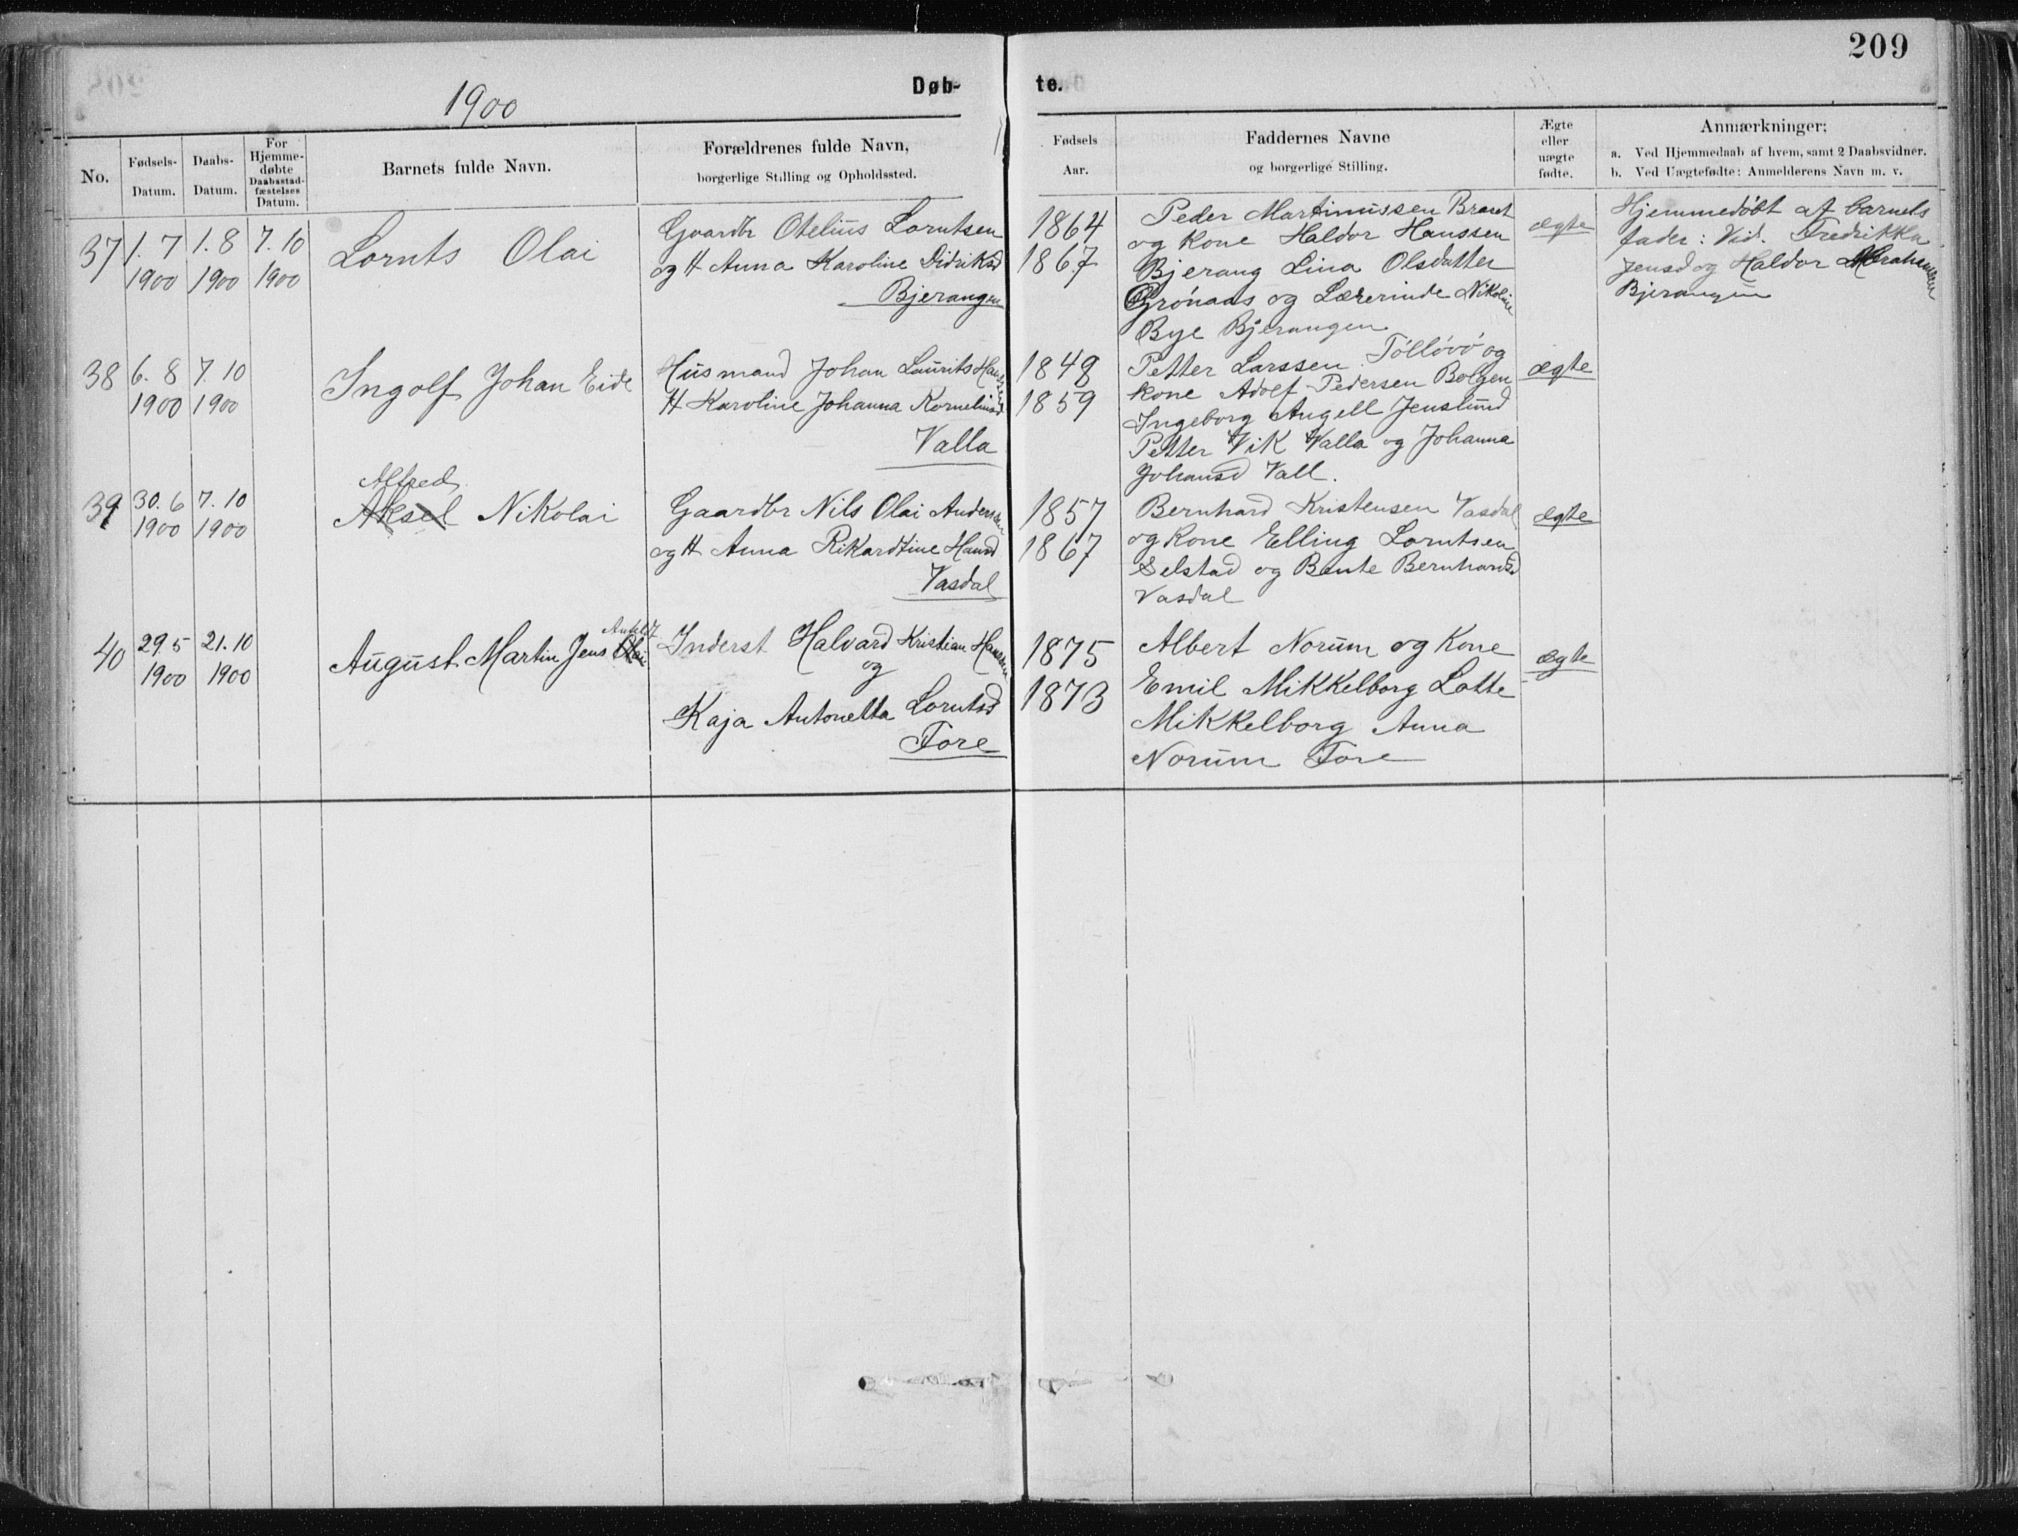 209
1900
Døb-
te.
No.
Fødsels-
Datum.
Daabs-
Datum.
For
Hjemme-
døbte
Daabsstad-
fæstelses
Datum.
Barnets fulde Navn.
Forældrenes fulde Navn,
borgerlige Stilling og Opholdssted.
Fødsels
Aar.
Faddernes Navne
og borgerlige Stilling.
Ægte
eller
uægte
fødte.
Anmærkninger;
a. Ved Hjemmedaab af hvem, samt 2 Daabsvidner.
b. Ved Uægtefødte: Anmelderens Navn m. v.
37
1. 7
1900
1. 8
1900
7. 10
1900
Lornts Olai
Gaardbr Otelius Lorntsen
og H Anna Karoline Didriksd
Bjerangen
1864
1867
Peder Martinussen
og Kone Haldor Hanssen
Bjerang Lina Olsdatter
Grønaas og Lærerinde Nikoline
Bye Bjerangen
ægte
Hjemmedøbt af barnets
fader: Vid. Fredrikka
Jensd og Haldor
Bjerangen
38
6. 8
1900
7. 10
1900
Ingolf Johan Eide
Husmand Johan Laurits
H Karoline Johanna Korneliusd
Valla
1848
1859
Petter Larssen og
kone Adolf Pedersen Bolgen
Ingeborg Angell Jenslund
Petter Vik Valla og Johanna
Johansd Vall.
ægte
39
30. 6
1900
7. 10
1900
Alfred
Aksel Nikolai
Gaardbr Nils Olai Anderssen
og H Anna Rikardtine Hansd
Vasdal
1857
1867
Bernhard Kristensen Vasdal
og Kone Elling Lorntsen
Selstad og Bente Bernhardsd
Vasdal
ægte
40
29. 5
1900
21. 10
1900
August Martin Jens Olai
Inderst Halvard Kristian Hanssen
og
Kaja Antonetta Lorntsd
Fore
1875
1873
Albert Norum og Kone
Emil Mikkelborg Lotte
Mikkelborg Anna
Norum Fore
ægte